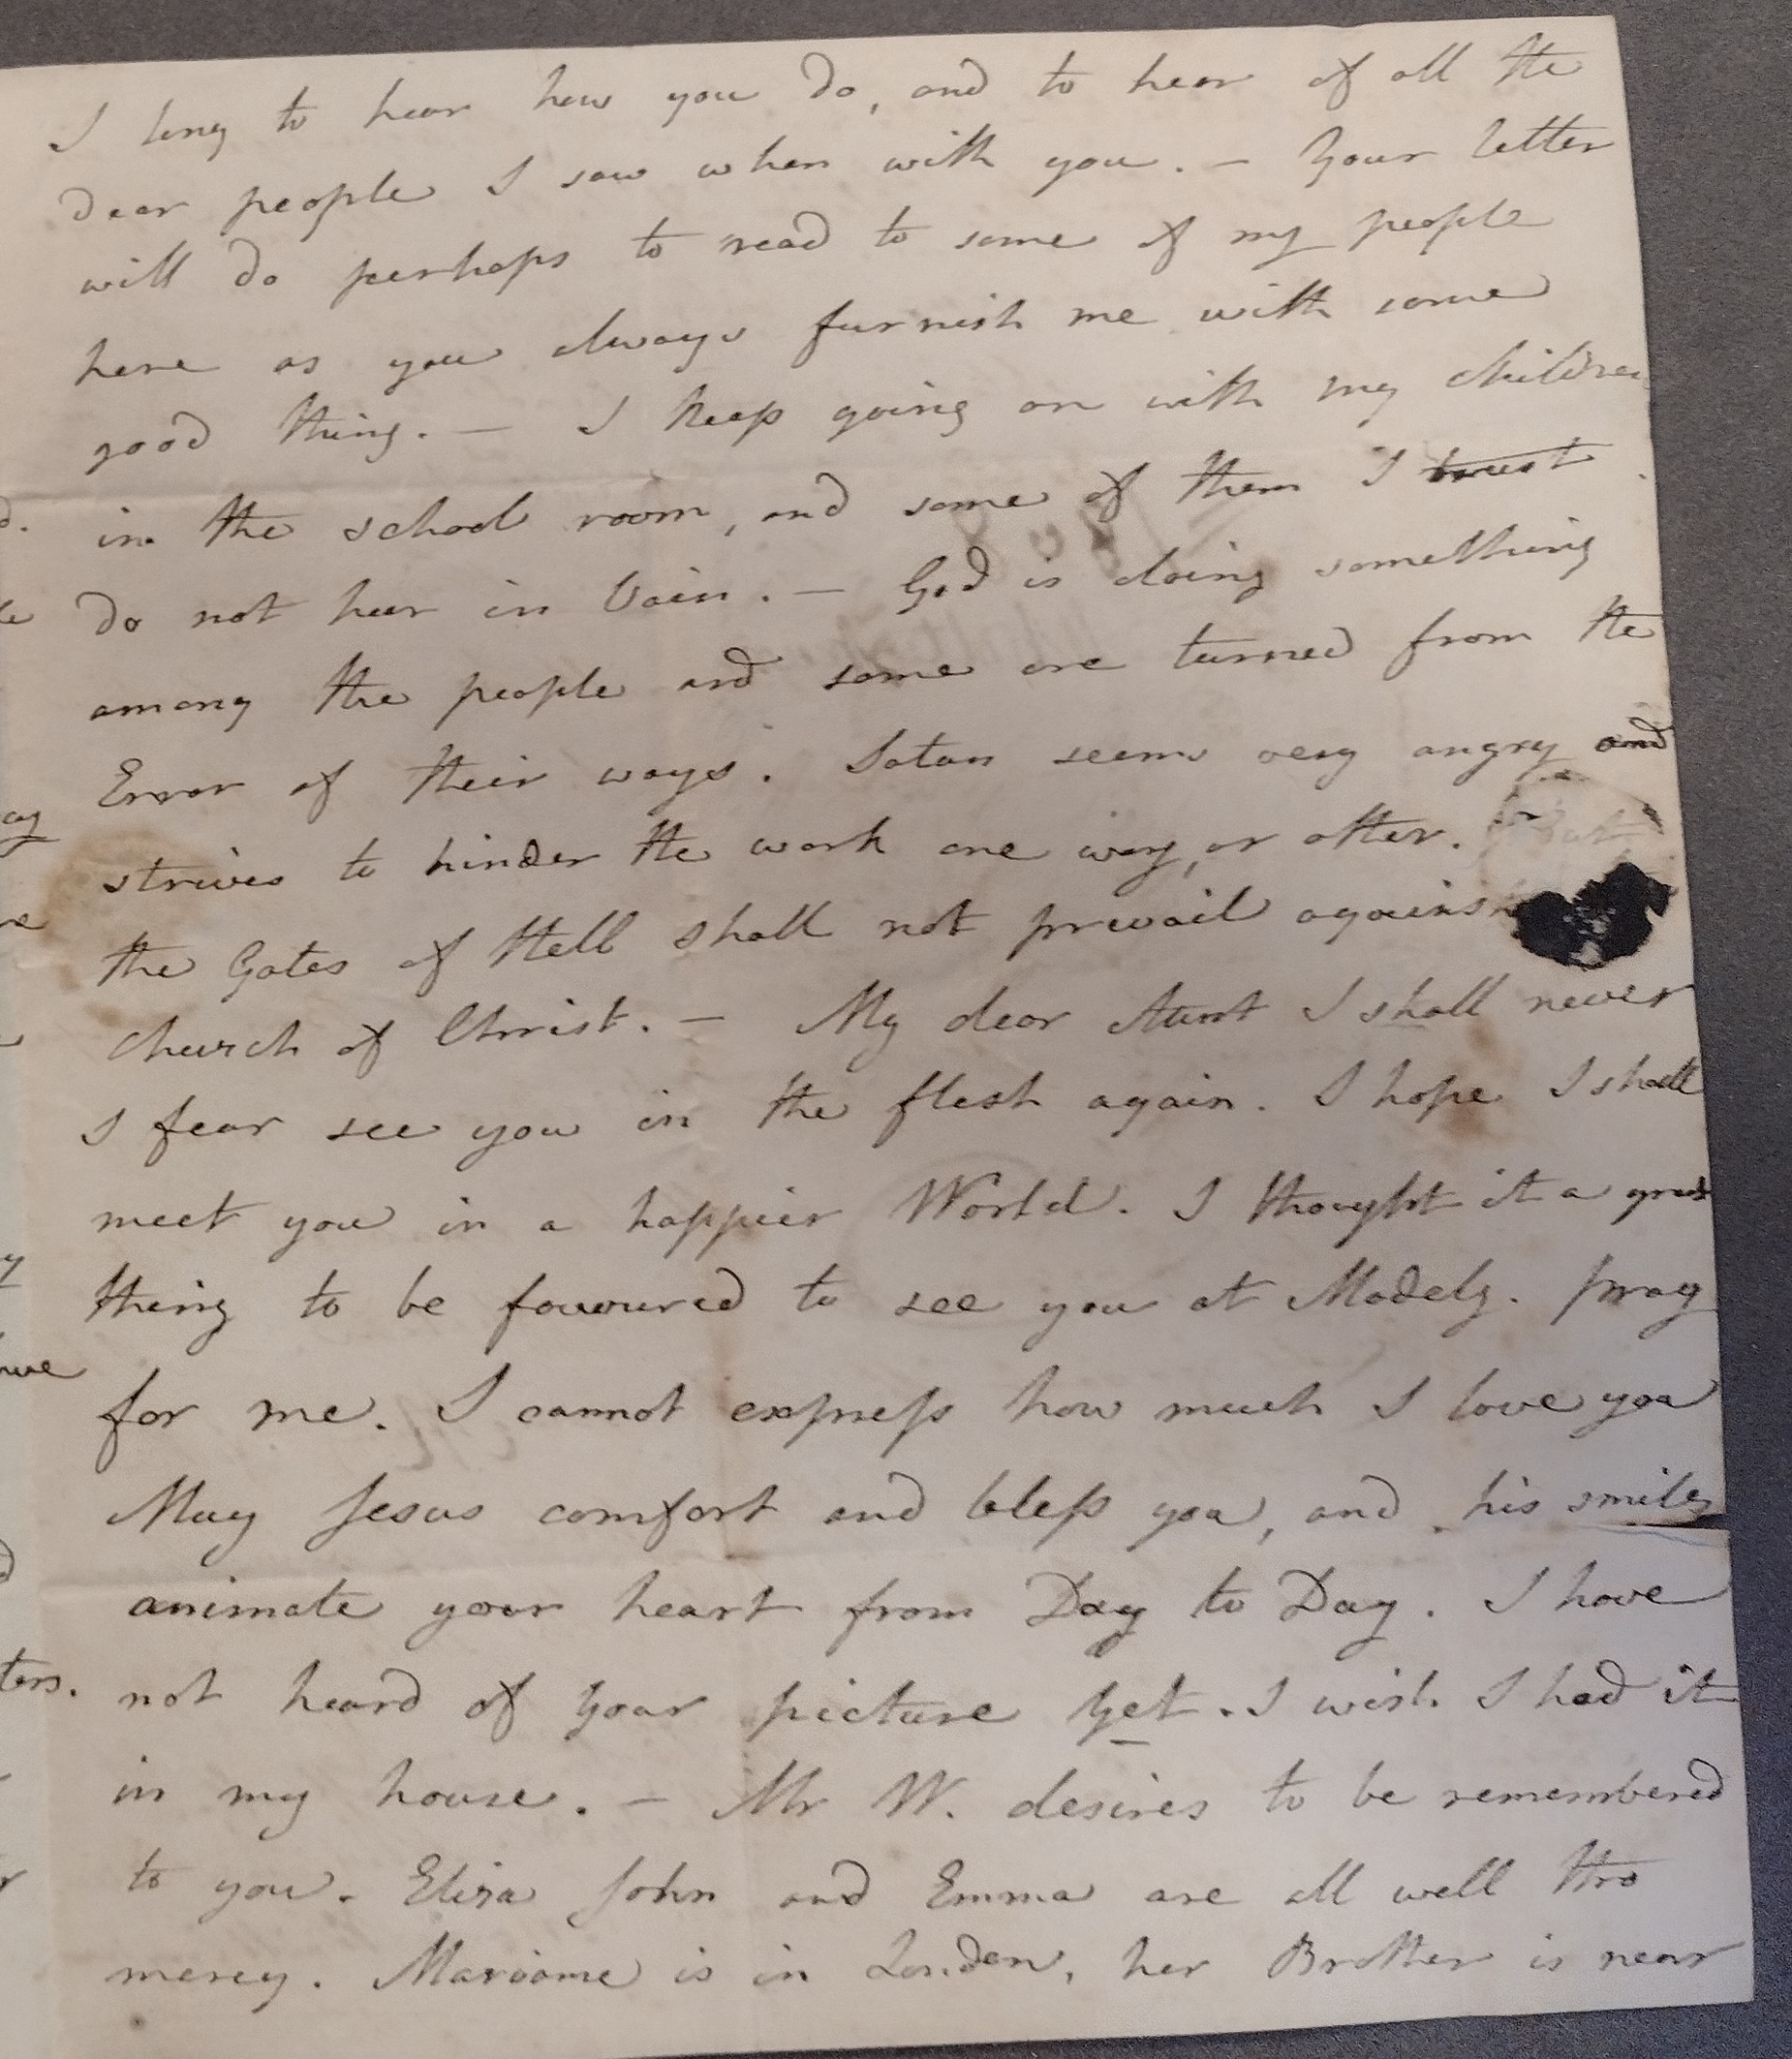 I long to hear how you do, and to hear of all the
dear people I saw when with you. — Your letter
will do perhaps to read to some of my people
here as you always furnish me with some
good thing. — I keep going on with my children
in the school room, and some of them I trust
do not hear in Vain. — God is doing something
among the people and some are turned from the
Error of their ways. Satan seems very angry and
strives to hinder the work one way, or other.
the Gates of Hell shall not prevail against
Church of Christ. — My dear Aunt I shall never
I fear see you in the flesh again. I hope I shall
meet you in a happier World. I thought it a great
thing to be favoured to see you at Madely. pray
for me. I cannot express how much I love you
May Jesus comfort and bless you, and his smiles
animate your heart from Day to Day. I have
not heard of your picture yet. I wish I had it
in my house. — Mr W. desires to be remembered
to you. Eliza John and Emma are all well thro
mercy. Marianne is in London, her Brother is near